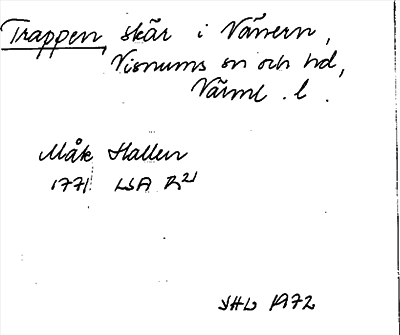 Trappen, skär i Vänern,
Visnums sn och hd,
Värml. l.
Måk Hallen
1771 LSA R21
VHL 1972